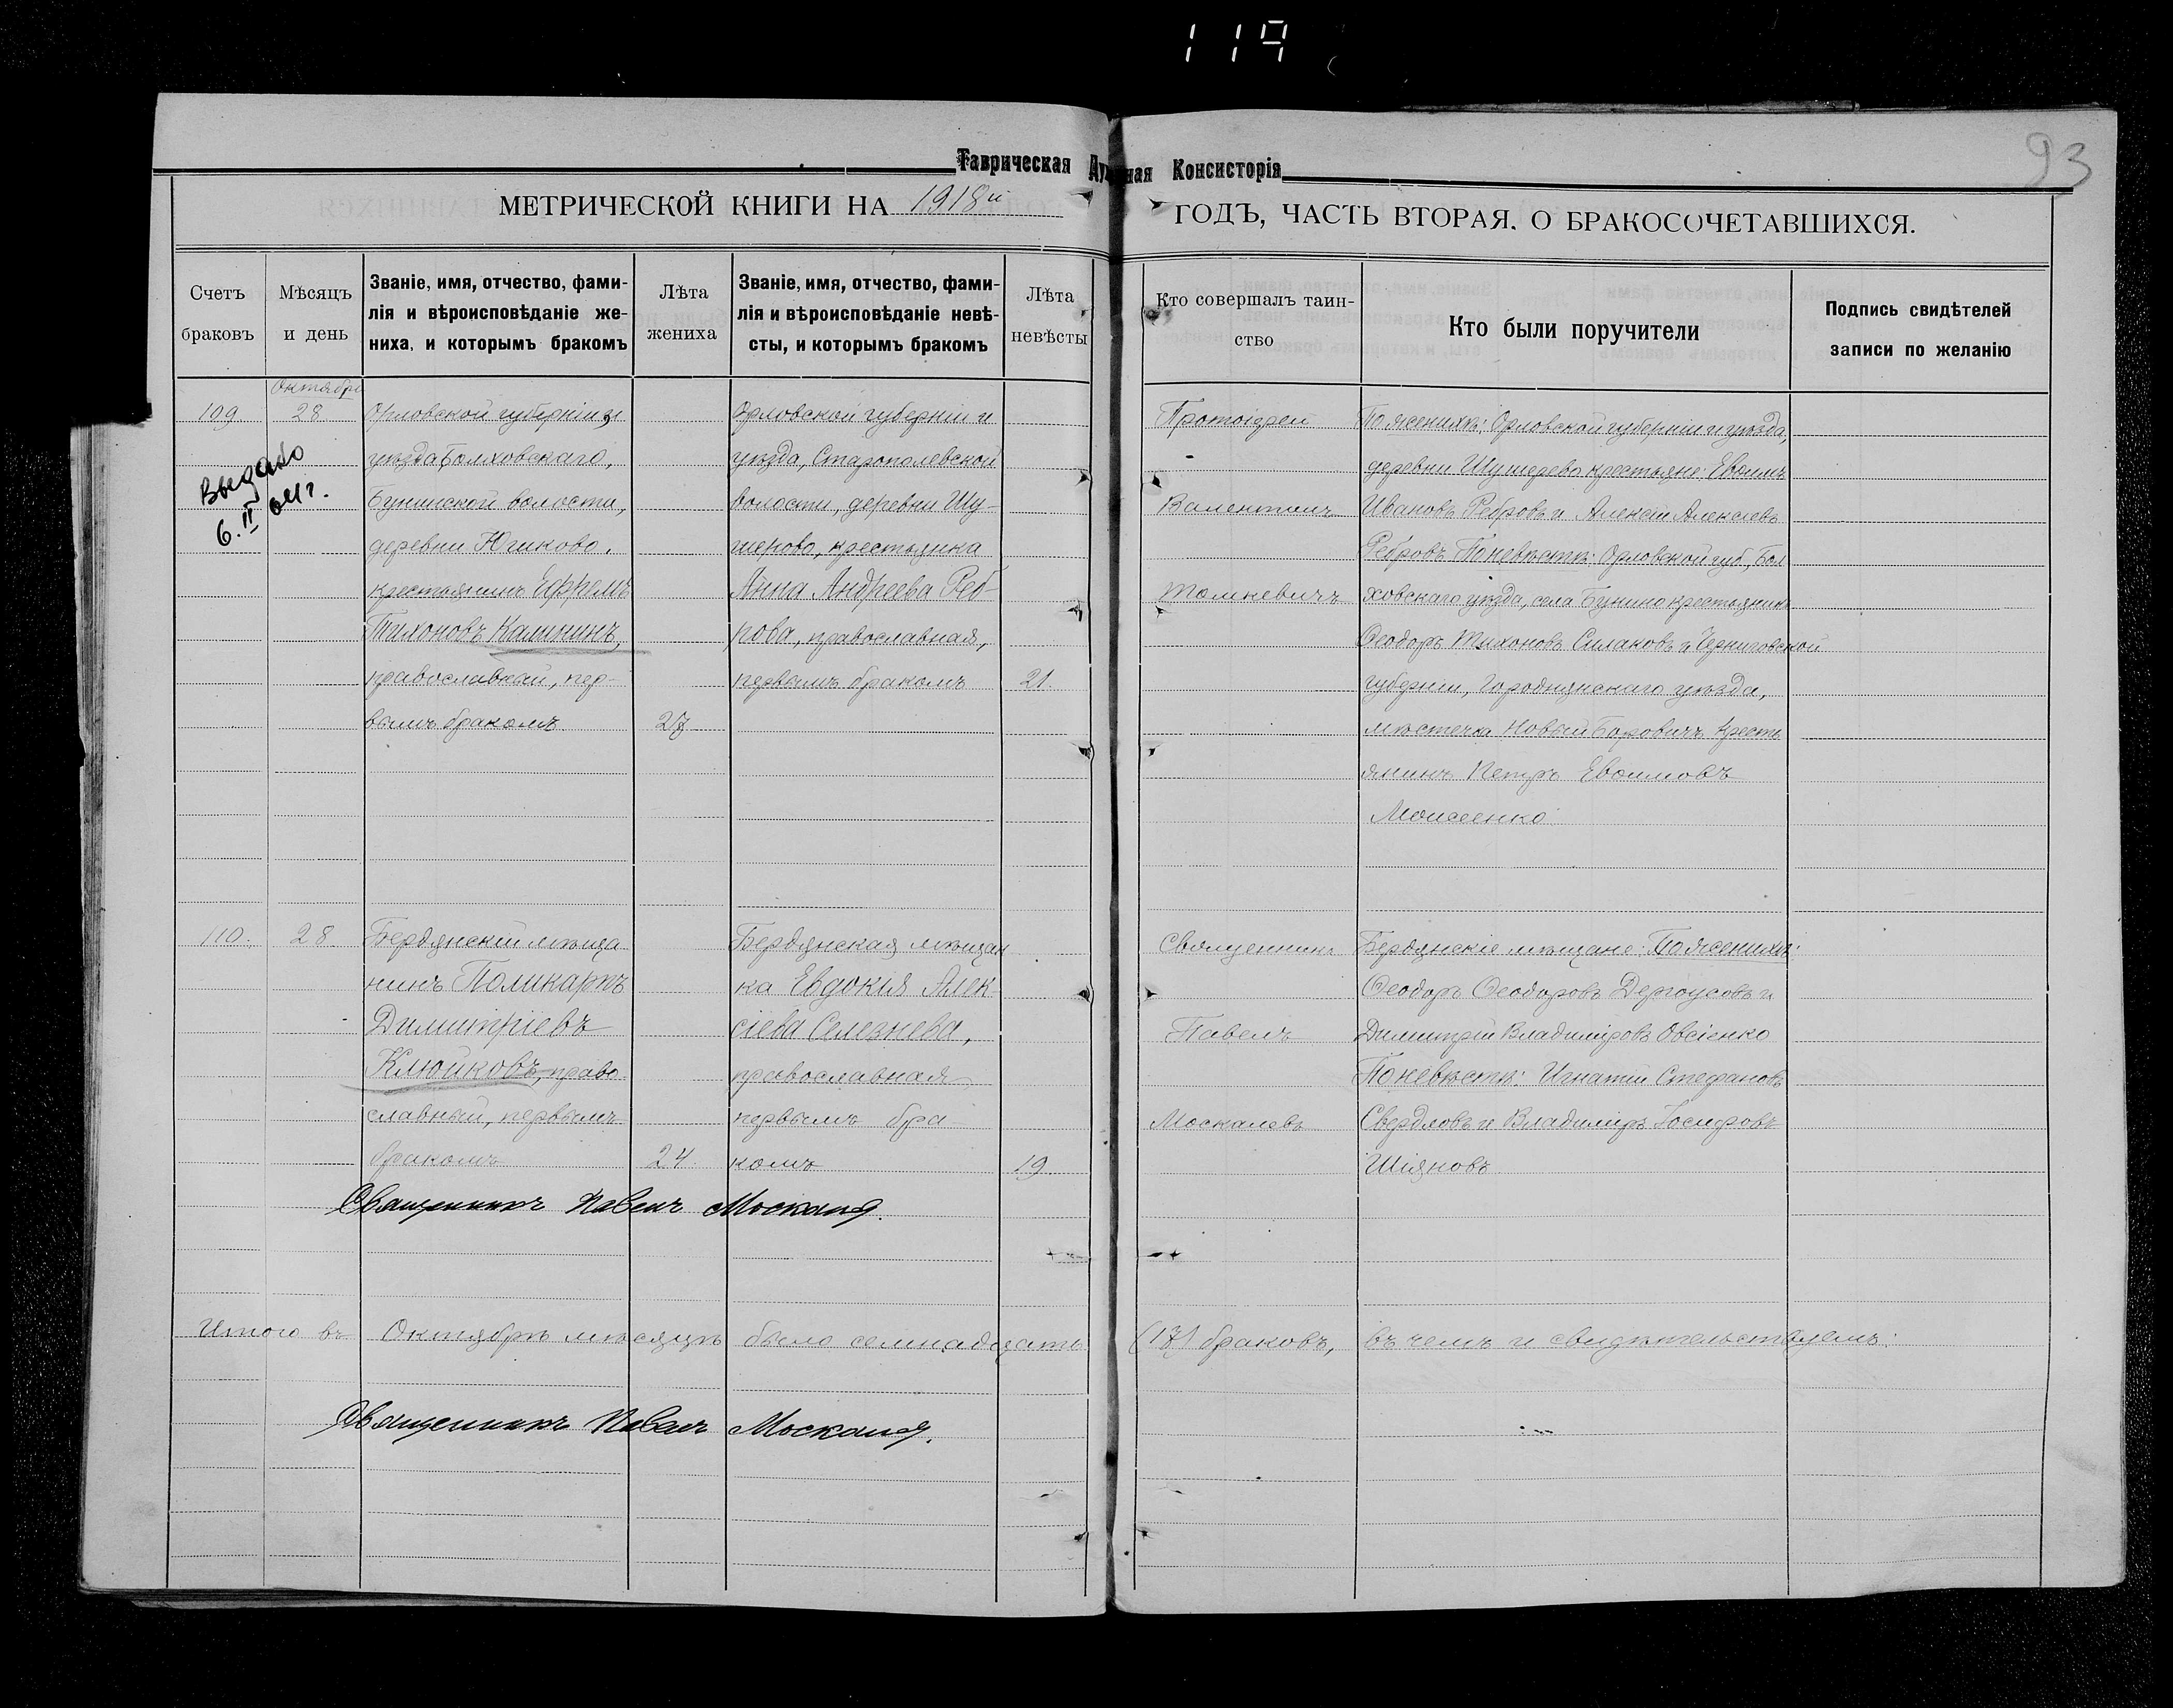 119
93
Таврическая Духовная Консисторія
МЕТРИЧЕСКОЙ КНИГИ НА 1918й ГОДЪ, ЧАСТЬ ВТОРАЯ, О БРАКОСОЧЕТАВШИХСЯ.
Счетъ
браковъ
Мѣсяцъ
и день
Званіе, имя, отчество, фами-
лія и вѣроисповѣданіе же-
ниха, и которымъ бракомъ
Лѣта
жениха
Званіе, имя, отчество, фами-
лія и вѣроисповѣданіе невѣ-
сты, и которымъ бракомъ
Лѣта
невѣсты
Кто совершалъ таин-
ство
Кто были поручители
Подпись свидѣтелей
записи по желанію
109.
Выдано
6.II 64г.
Октября
28
Орловской губерніи,
уѣзда Болховскаго,
Бунинской волости,
деревни Югиково,
крестьянинъ Ефремъ
Тихоновъ Калининъ,
православный, пер-
вымъ бракомъ
27
Орловской губерніи и
уѣзда, Старополевской
волости, деревни Шу-
мерово, крестьянка
Анна Андреева Реб-
рова, православная,
первымъ бракомъ
21.
Протоіерей
Валентинъ
Томкевичъ
По женихѣ: Орловской губерніи и уѣзда,
деревни Шумерево крестьяне: Евѳимъ
Ивановъ Ребровъ и Алексій Алексѣевъ
Ребровъ. По невѣстѣ: Орловской губ., Бол
ховскаго уѣзда, села Бунино крестьянинъ
Ѳеодоръ Тихоновъ Силаковъ и Черниговской
губерніи, Городнянскаго уѣзда,
мѣстечка Новый Боровичъ кресть
янинъ Петръ Евѳимовъ
Моисеенко
110.
28.
Бердянскій мѣща
нинъ Поликарпъ
Димитріевъ
Клюйковъ, право-
славный, первымъ
бракомъ
24.
Бердянская мѣщан
ка Евдокія Алек-
сіева Селезнева,
православная,
первымъ бра-
комъ
19
Священникъ
Павелъ
Москалевъ
Бердянскіе мѣщане: По женихѣ:
Ѳеодоръ Ѳеодоровъ Дергоусовъ и
Димитрій Владиміровъ Овсіенко
По невѣстѣ: Игнатій Стефановъ
Свердловъ и Владиміръ Іосифовъ
Шіяновъ
Священникъ Павелъ
Итого въ Октябрѣ мѣсяцѣ было семнадцать (17) браковъ, въ чемъ и свидѣтельствуемъ:
Священникъ Павелъ